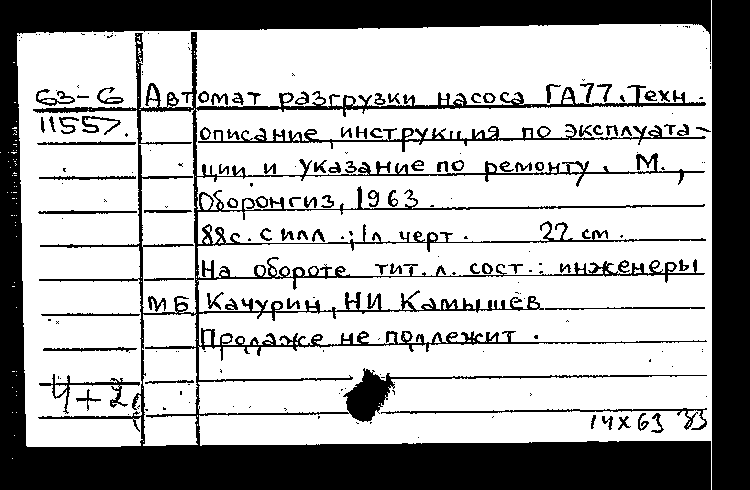 63-6 Автомат разгрузки насоса ГА77. Техн.
11557. описание, инструкция по эксплуата-
ции и указание по ремонту. М.,
Оборонгиз, 1963.
88с. с илл.; 1л черт. 22 см.
На обороте тит. л. сост.: инженеры
МБ Качурин, НИ Камышев
Продаже не подлежит.
4+2
14х63